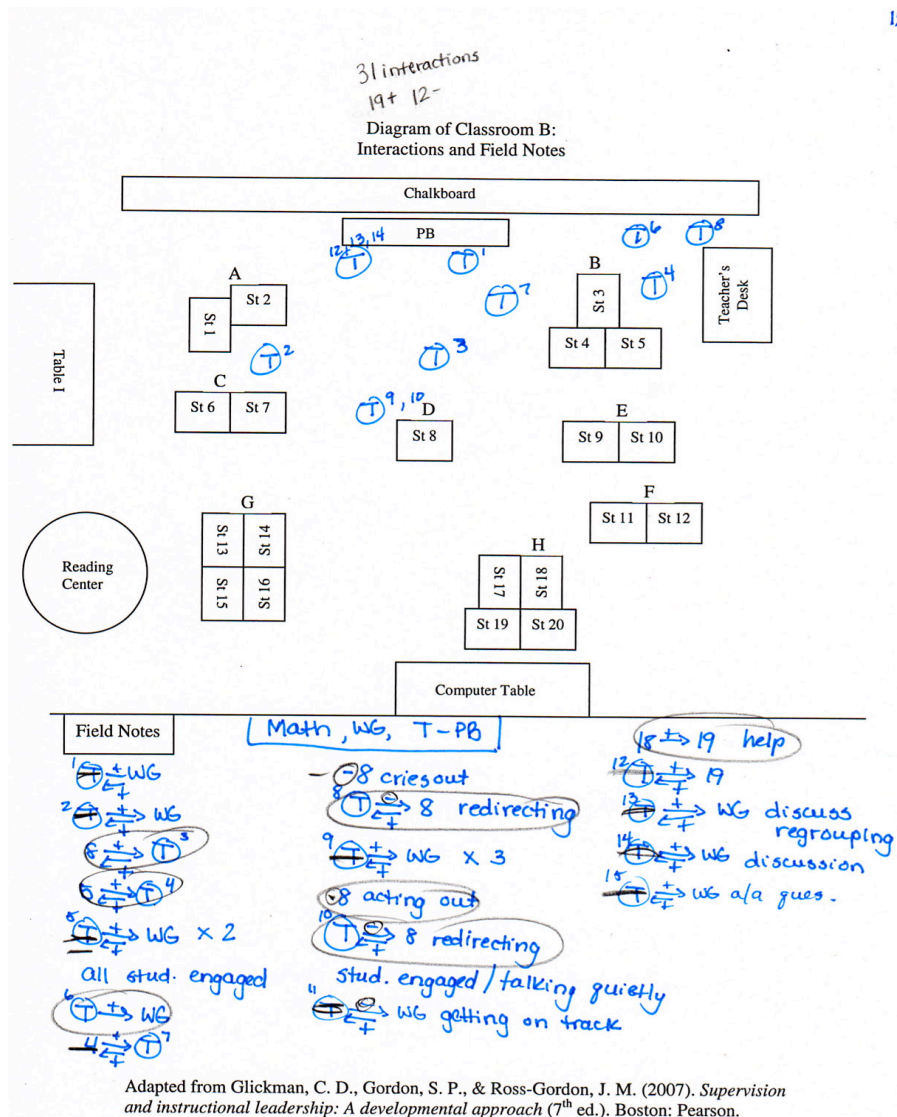 31 interactions
19+ 12-
Diagram of Classroom B:
Interactions and Field Notes
Chalkboard
PB
12+13,14 T
T 1
T 6
T 8
T 7
T 4
Teacher's
Desk
A
St 2
St 1
B
St 3
St 4 St 5
Table I
T 2
T 3
C
St 6 St 7
T 9, 10
D
St 8
E
St 9 St 10
F
St 11 St 12
G
St 13 St 14
St 15 St 16
Reading
Center
H
St 17 St 18
St 19 St 20
Computer Table
Field Notes
1 T + + WG
2 T + + WG
8 + + T 3
5 + + T 4
5 T + + WG x 2
all stud. engaged
6 T + WG
4 + + T 7
Math, WG, T-PB
- - 8 cries out
8 T - + 8 redirecting
9 T + + WG x 3
- 8 acting out
10 T - + 8 redirecting
stud. engaged/talking quietly
11 T - + WG getting on track
18 + 19 help
12 T + + 19
13 T + + WG discuss
regrouping
14 T + + WG discussion
15 T + + WG a/a ques.
Adapted from Glickman, C. D., Gordon, S. P., & Ross-Gordon, J. M. (2007). Supervision
and instructional leadership: A developmental approach (7th ed.). Boston: Pearson.